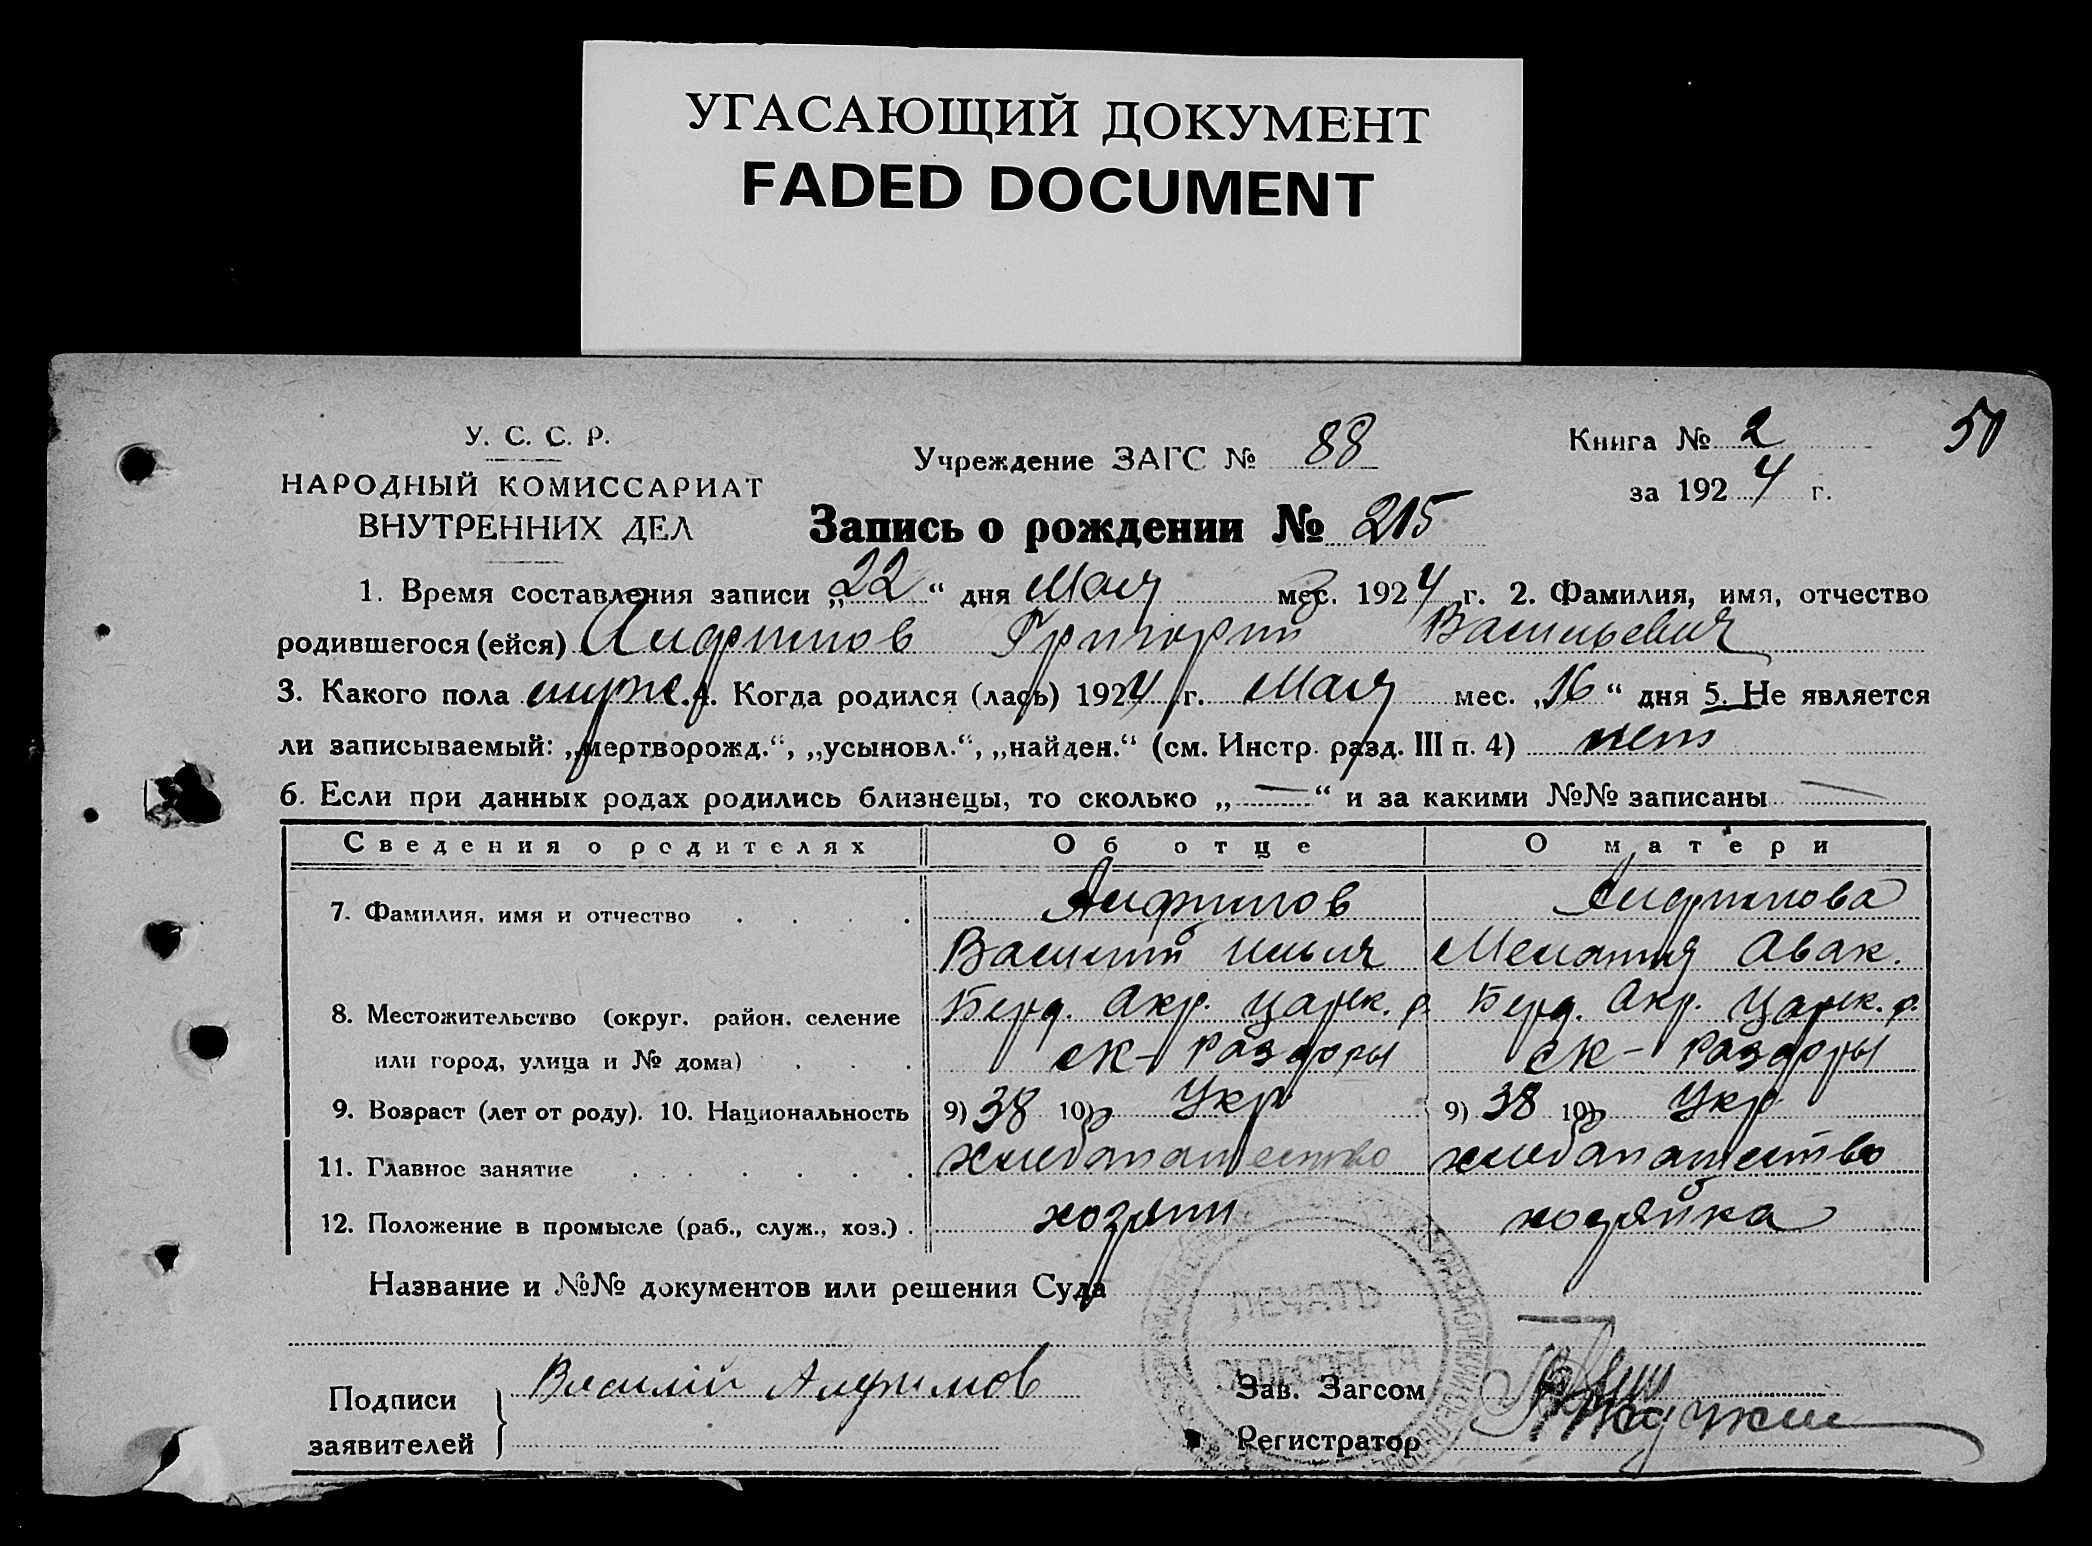 УГАСАЮЩИЙ ДОКУМЕНТ
FADED DOCUMENT
У. С. С. Р.
НАРОДНЫЙ КОМИССАРИАТ
ВНУТРЕННИХ ДЕЛ
Учреждение ЗАГС № 88
Книга № 2
50
за 1924 г.
Запись о рождении № 215
1. Время составления записи „22“ дня Мая мес. 1924 г. 2. Фамилия, имя, отчество
родившегося (ейся) Алфимов Григорий Васильевич
3. Какого пола муж. 4. Когда родился (лась) 1924 г. Мая мес. „16“ дня 5. Не является
ли записываемый: „мертворожд.“, „усыновл.“, „найден.“ (см. Инстр. разд. III п. 4) нет
6. Если при данных родах родились близнецы, то сколько „—“ и за какими №№ записаны —
Сведения о родителях Об отце О матери
7. Фамилия, имя и отчество Алфимов Алфимова
Василий Ильич Мелания Авак.
8. Местожительство (округ, район, селение Берд. Окр. Царек. р. Берд. Окр. Царек. р.
или город, улица и № дома) ск- Раздоры ск- Раздоры
9. Возраст (лет от роду). 10. Национальность 9) 38 10) Укр 9) 38 10) Укр.
11. Главное занятие хлебопашество хлебопашество
12. Положение в промысле (раб., служ., хоз.) хозяин хозяйка
Название и №№ документов или решения Суда
ПЕЧАТЬ
СЕЛЬСОВЕТА
Подписи
заявителей
Василий Алфимов
Зав. Загсом
Регистратор